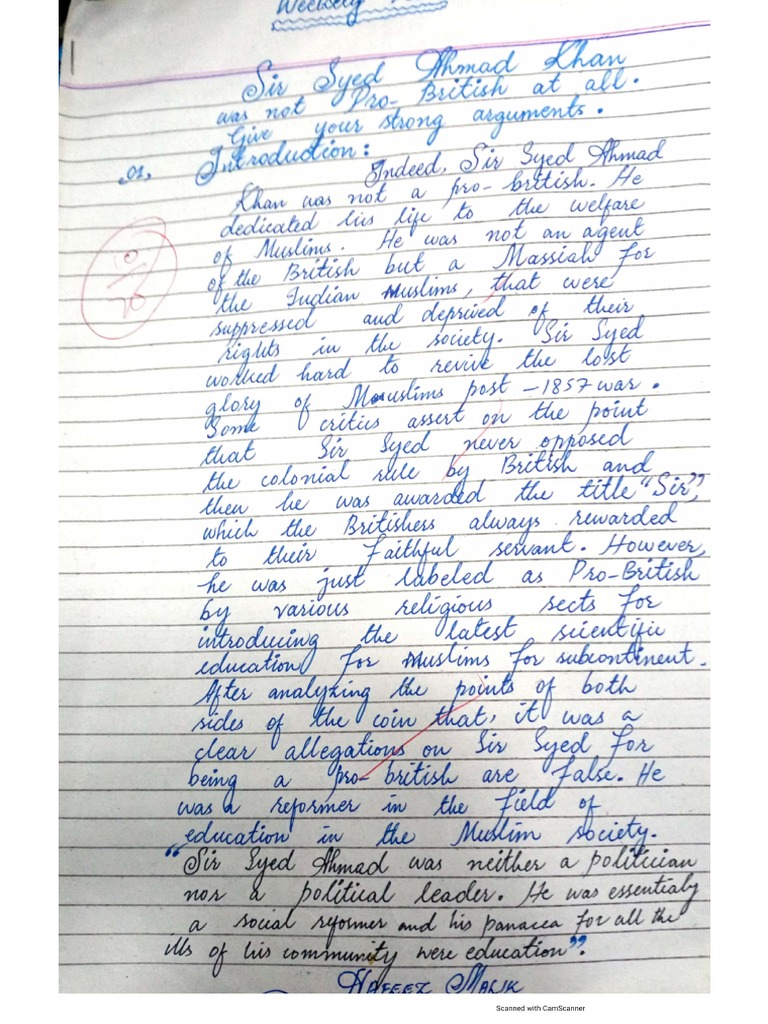 Weekly
Sir Syed Ahmad Khan
was not Pro-British at all.
Give your strong arguments.
Introduction:
Indeed, Sir Syed Ahmad
Khan was not a pro-british. He
dedicated his life to the welfare
of Muslims. He was not an agent
of the British but a Massiah for
the Indian Muslims, that were
suppressed and deprived of their
rights in the society. Sir Syed
worked hard to revive the lost
glory of Muslims post-1857 war.
Some critics assert on the point
that Sir Syed never opposed
the colonial rule by British and
then he was awarded the title "Sir",
which the Britishess always rewarded
to their faithful servant. However,
he was just labeled as Pro-British
by various religious sects for
introducing the latest scientific
education for Muslims for subcontinent.
After analyzing the points of both
sides of the coin that, it was a
clear allegations on Sir Syed for
being a pro-british are false. He
was a reformer in the field of
education in the Muslim society.
"Sir Syed Ahmad was neither a politician
nor a political leader. He was essentialy
a social reformer and his panacea for all the
ills of his community were education".
Hafeez Malik
Scanned with CamScanner